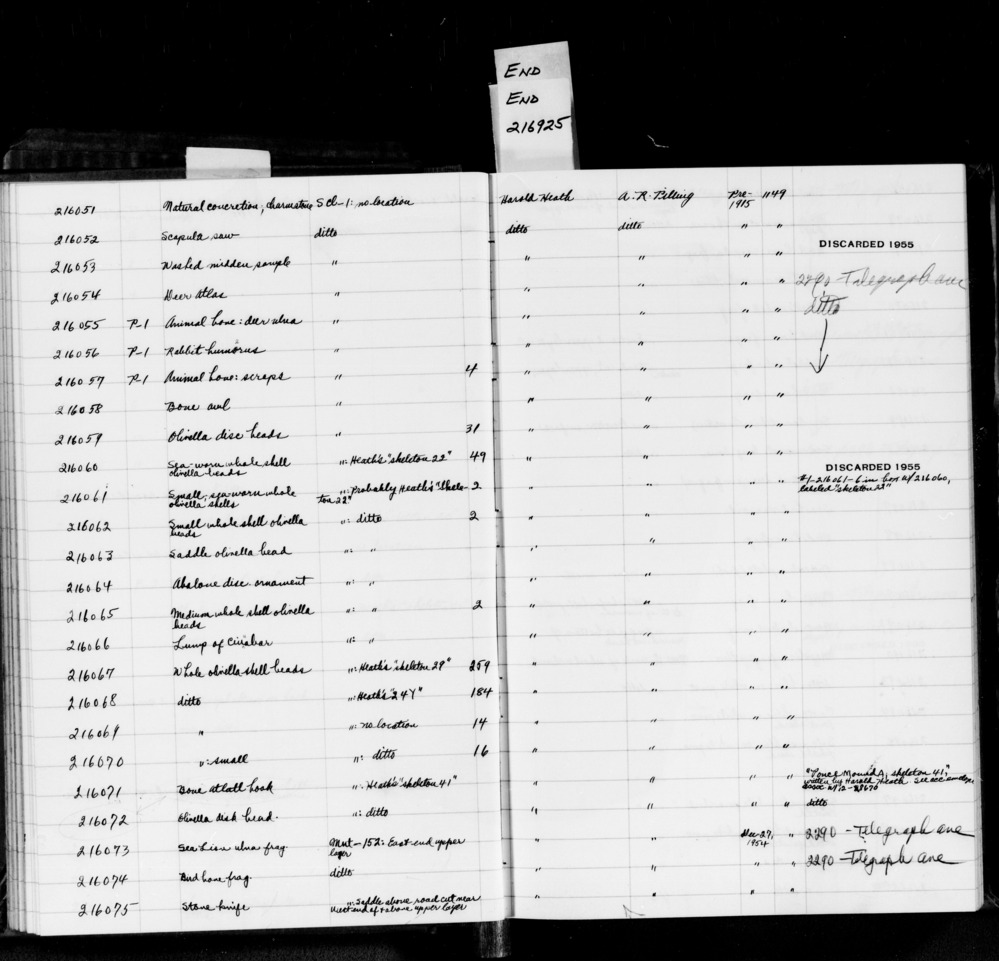 END
END
216925
216051 Natural concretion, charmstone SCL-1: no location Harold Heath A. R. Pilling Pre-1915 1149
216052 Scapula saw ditto ditto ditto " " DISCARDED 1955
216053 Washed midden sample " " " " "
216054 Deer atlas " " " " " 2290 - Telegraph ave
216055 P-1 Animal bone: deer ulna " " " " " ditto
216056 P-1 Rabbit humorus " " " " "
216057 P-1 Animal bone: scraps " 4 " " " "
216058 Bone awl " " " " "
216059 Olivella disc beads " 31 " " " "
216060 Sea-worn whole shell olivella beads ": Heath's "skeleton 22" 49 " " " " DISCARDED 1955
216061 Small, sea-worn whole olivella shells ": Probably Heath's "skeleton 22" 2 " " " " #1-216061-6 in box w/ 216060, labeled "skeleton 22"
216062 Small whole shell olivella beads ": ditto 2 " " " "
216063 Saddle olivella bead ": " " " " "
216064 Abalone disc ornament ": " " " " "
216065 Medium whole shell olivella beads ": " 2 " " " "
216066 Lump of cinabar ": " " " " "
216067 Whole olivella shell beads ": Heath's "skeleton 29" 259 " " " "
216068 ditto ": Heath's 184 " " " "
216069 " ": no location 14 " " " "
216070 ": small ": ditto 16 " " " "
216071 Bone atlatl hook ": Heath's "skeleton 41" " " " " Mound A, skeleton 41", written by Harold Heath
216072 Olivella disk bead. ": ditto " " " " ditto
216073 Sea lion ulna frag. Mnt-152: East end upper layer " " Dec-27, 1954 " 2290 - Telegraph ave
216074 Bird bone frag. ditto " " " " 2290 - Telegraph ave
216075 Stone knife ": Saddle above road cut near West end of upper layer " " " "